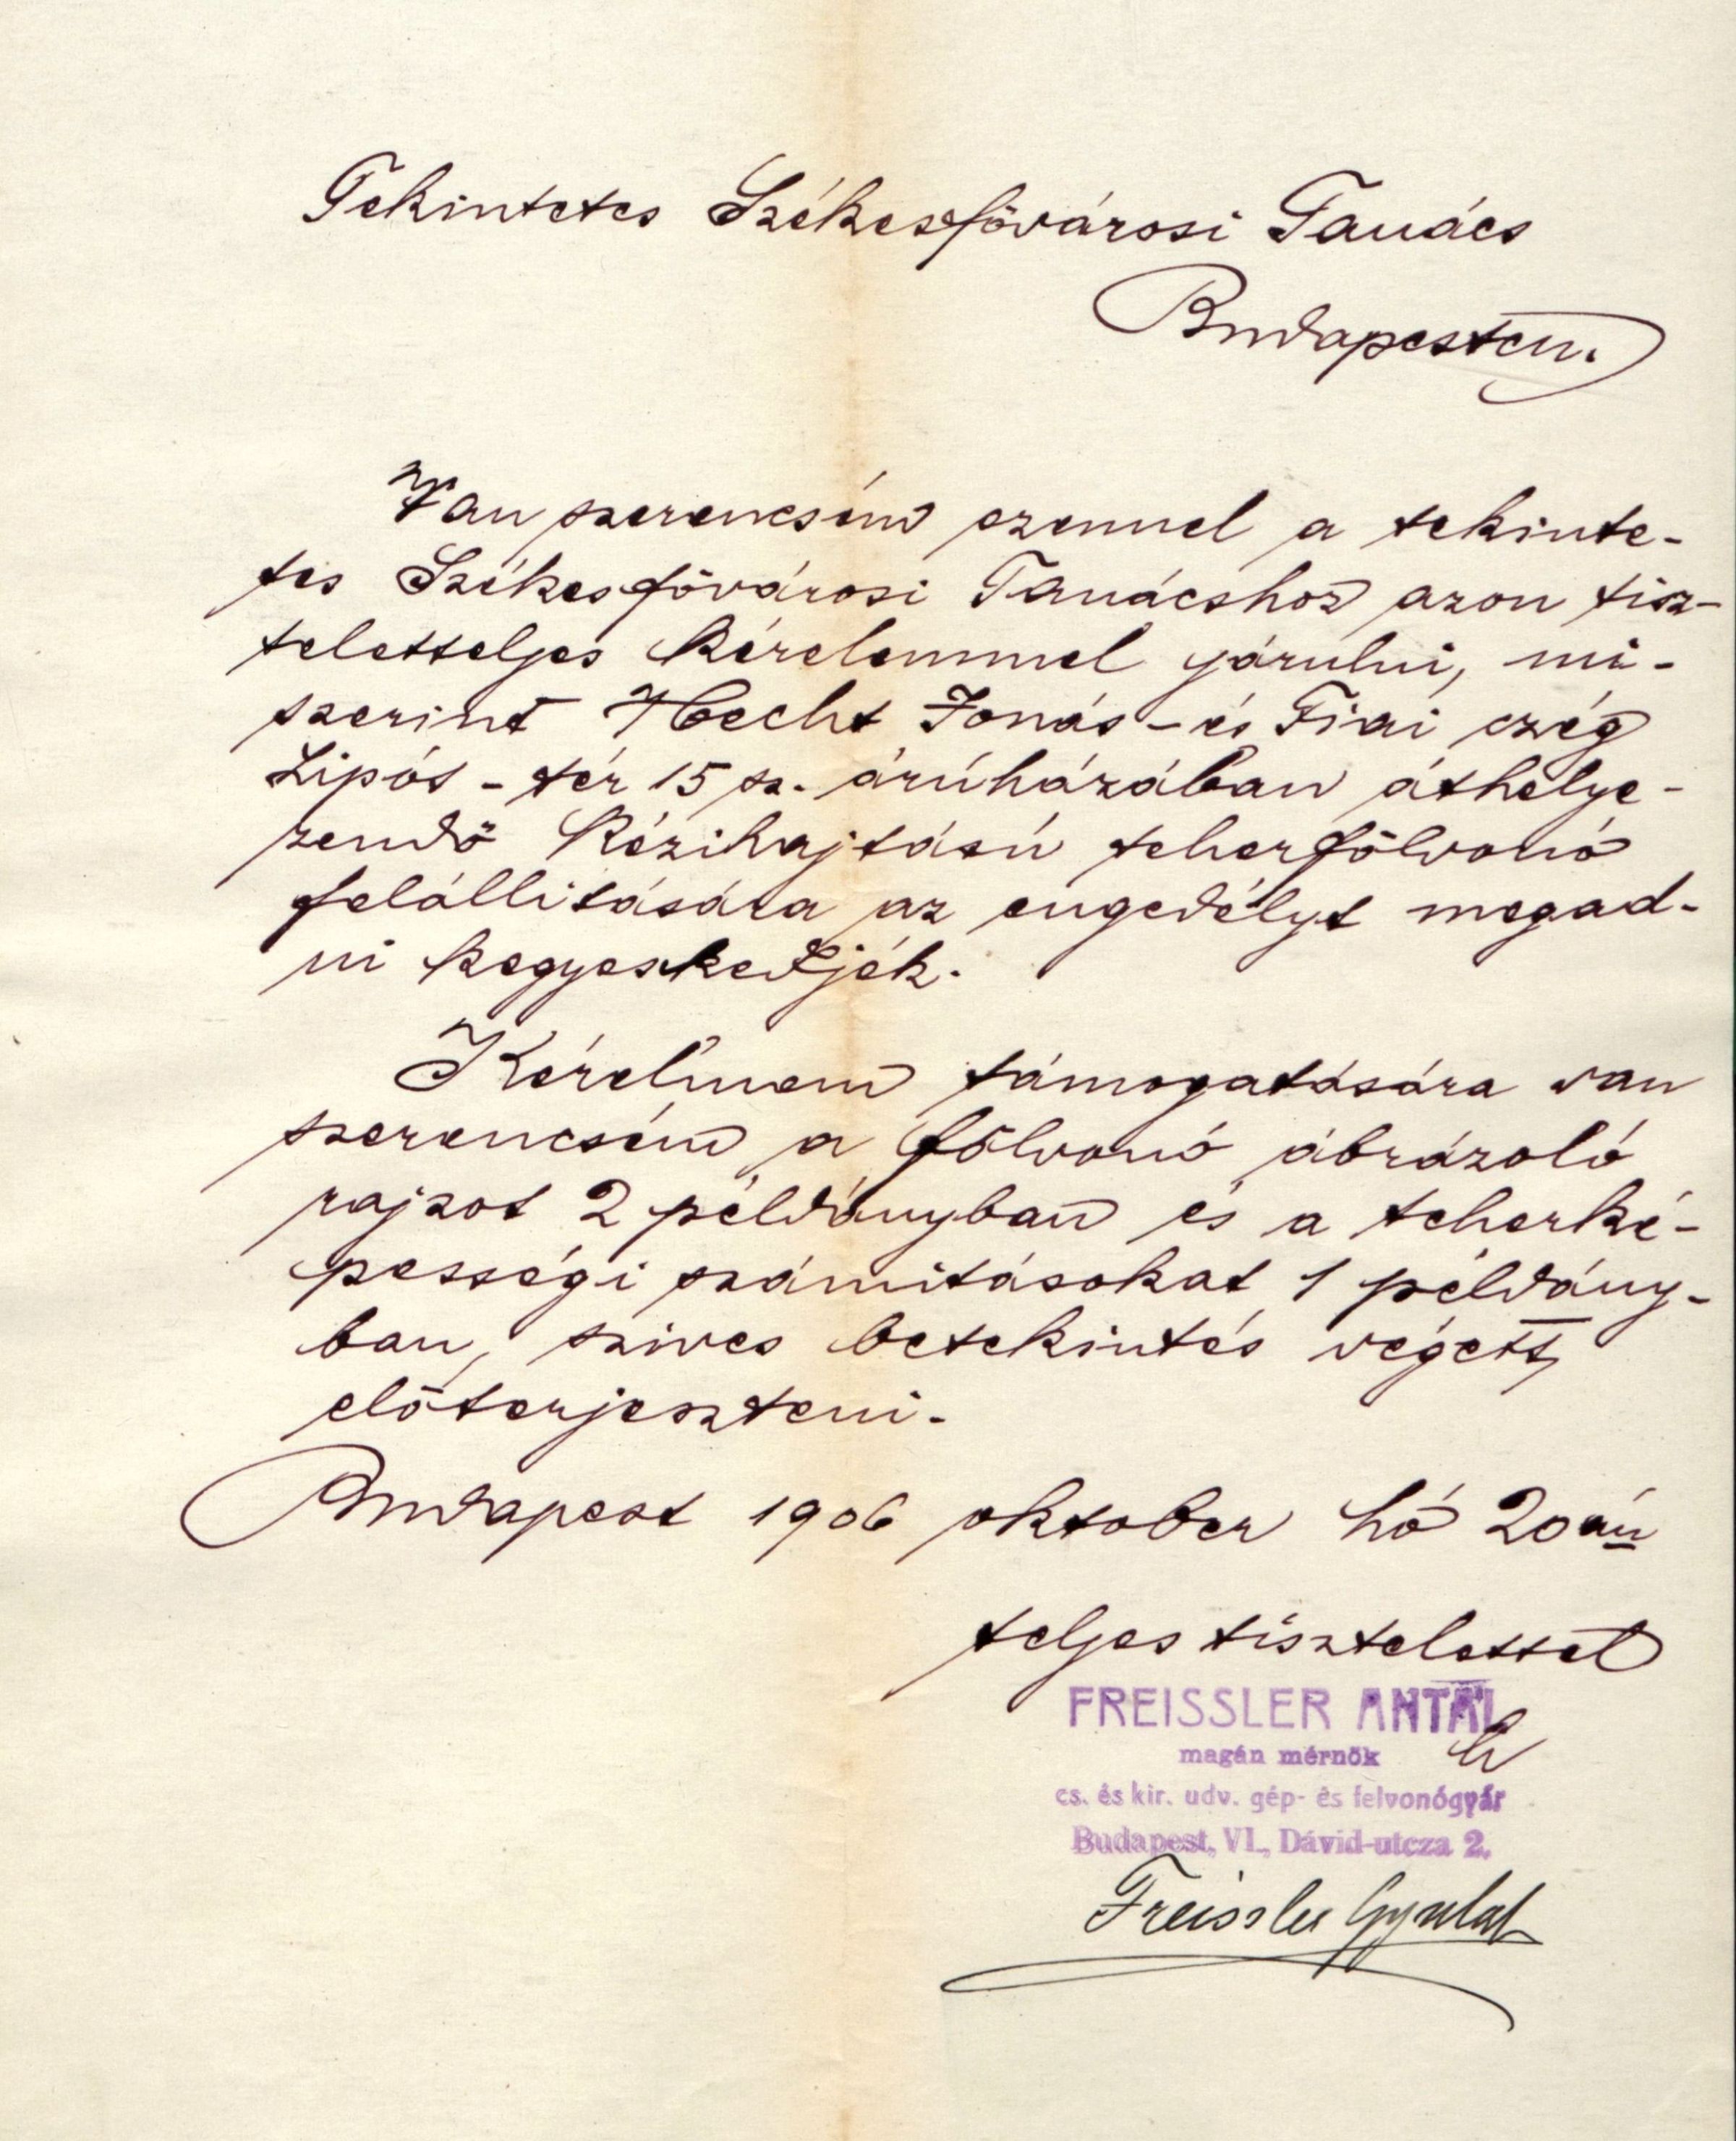 Tekintetes Székesfővárosi Tanács
Budapesten.
Van szerencsém ezennel a tekinte-
tes Székesfővárosi Tanácshoz azon tisz-
teletteljes kérelemmel járulni, mi-
szerint Hecht Jonás - és Fiai czég
Lipót - tér 15 sz. árúházában áthelye-
zendő kézihajtású teherfölvonó
felállitására az engedélyt megad-
ni kegyeskedjék.
Kérelmem támogatására van
szerencsém a fölvonó ábrázoló
rajzot 2 példányban és a teherké-
pességi számitásokat 1 példány-
ban, szives betekintés végett,
előterjeszteni.
Budapest 1906 oktober hó 20án
teljes tisztelettel
FREISSLER ANTAL
magán mérnök
cs. és kir. udv. gép- és felvonógyár
Budapest, VI., Dávid-utcza 2.
Freissler Gyula